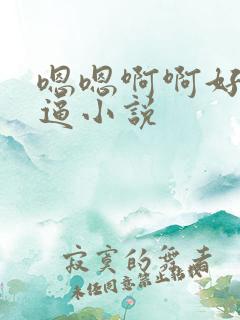 嗯嗯啊啊好
逼小说
寂寞的舞者
未经同意禁止转载